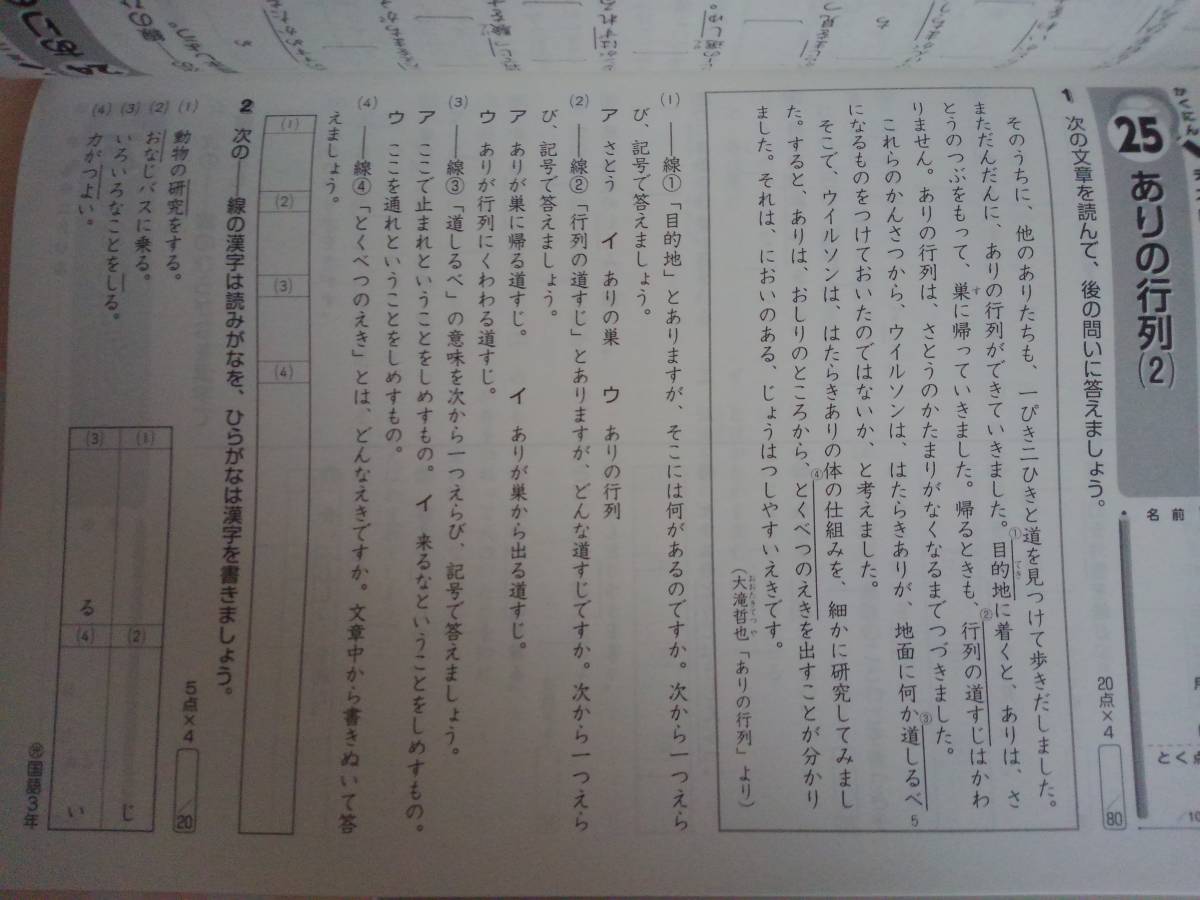 25
ありの行列(2)
名前
とく点
1 次の文章を読んで、後の問いに答えましょう。
20点×4
/80
そのうちに、他のありたちも、一ぴき二ひきと道を見つけて歩きだしました。
まただんだんに、ありの行列ができていきました。目的地に着くと、ありは、さ
①
てき
とうのつぶをもって、巣に帰っていきました。帰るときも、行列の道すじはかわ
す
②
りません。ありの行列は、さとうのかたまりがなくなるまでつづきました。
これらのかんさつから、ウイルソンは、はたらきありが、地面に何か道しるべ
③
になるものをつけておいたのではないか、と考えました。
5
そこで、ウイルソンは、はたらきありの体の仕組みを、細かに研究してみまし
た。すると、ありは、おしりのところから、とくべつのえきを出すことが分かり
④
ました。それは、においのある、じょうはつしやすいえきです。
(大滝哲也「ありの行列」より)
おおたきてつや
(1) ――線①「目的地」とありますが、そこには何があるのですか。次から一つえら
び、記号で答えましょう。
ア さとう イ ありの巣 ウ ありの行列
(2) ――線②「行列の道すじ」とありますが、どんな道すじですか。次から一つえら
び、記号で答えましょう。
ア ありが巣に帰る道すじ。 イ ありが巣から出る道すじ。
ウ ありが行列にくわわる道すじ。
(3) ――線③「道しるべ」の意味を次から一つえらび、記号で答えましょう。
ア ここで止まれということをしめすもの。 イ 来るなということをしめすもの。
ウ ここを通れということをしめすもの。
(4) ――線④「とくべつのえき」とは、どんなえきですか。文章中から書きぬいて答
えましょう。
(1)
(2)
(3)
(4)
2 次の――線の漢字は読みがなを、ひらがなは漢字を書きましょう。
5点×4
/20
(1) 動物の研究をする。
(2) おなじバスに乗る。
(3) いろいろなことをしる。
(4) 力がつよい。
(1)
(2) じ
(3) る
(4) い
国語3年